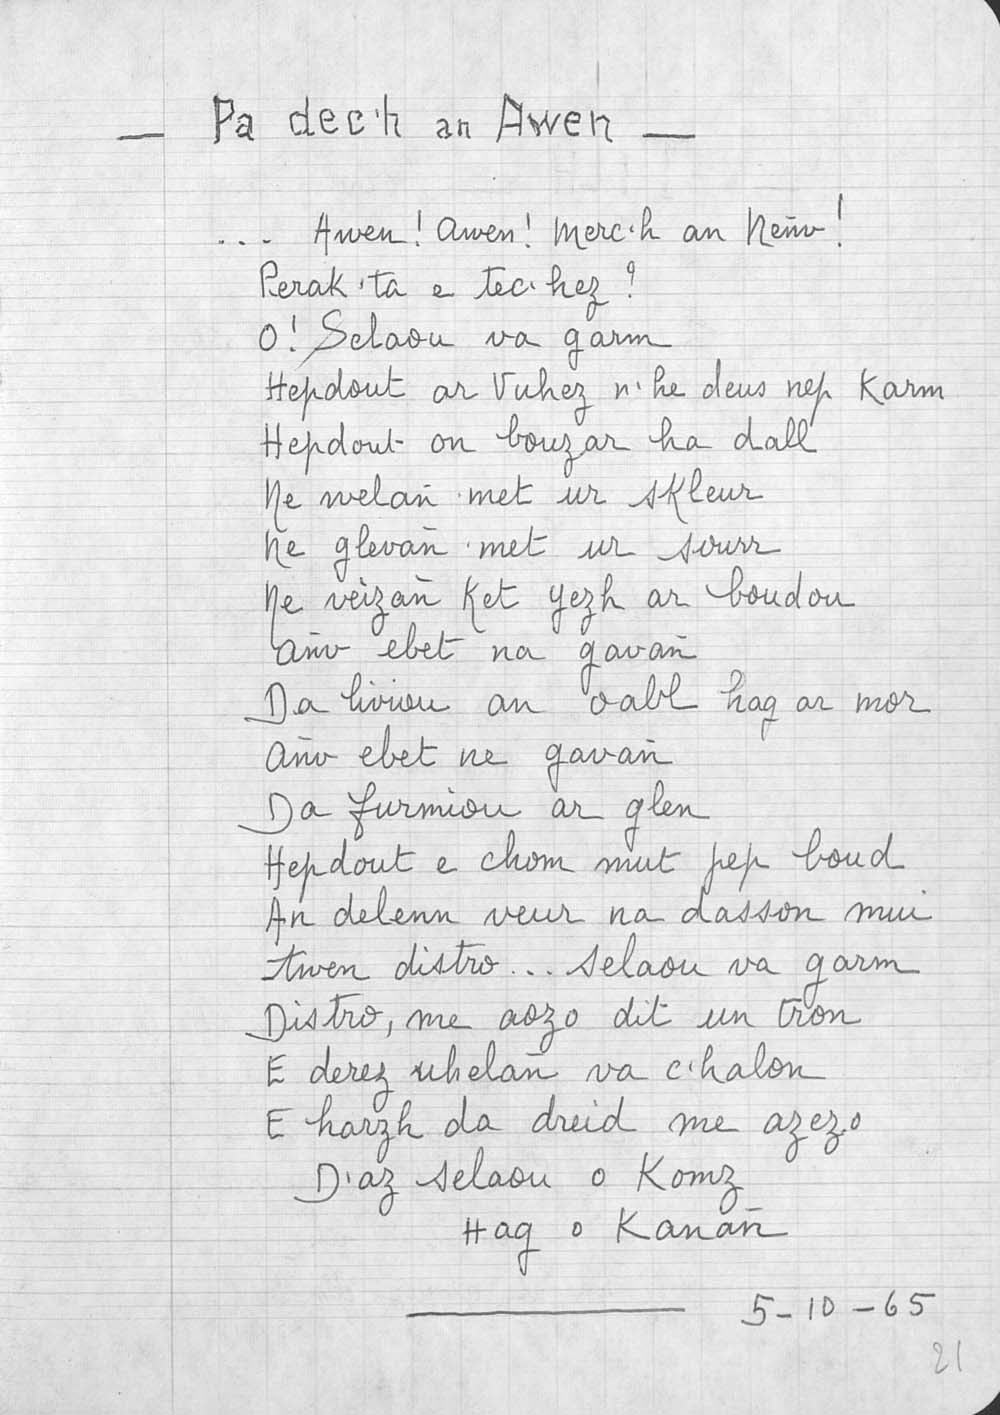 — Pa dec'h an Awen —
... Awen! Awen! Merc'h an Neñv!
Perak 'ta e tec'hez?
O! Selaou va garm
Hepdout ar Vuhez n'he deus nep Karm
Hepdout on bouzar ha dall
Ne welañ 'met ur skleur
Ne glevañ 'met ur sourr
Ne veizañ Ket yezh ar boudou
Anv ebet na gavañ
Da liviou an oabl hag ar mor
Anv ebet ne gavañ
Da furmiou ar glen
Hepdout e chom mut pep boud
An delenn veur na dasson mui
Awen distro... selaou va garm
Distro, me aozo dit un tron
E derez uhelañ va c'halon
E harzh da dreid me azezo
D'az selaou o Komz
Hag o Kanañ
5-10-65
21